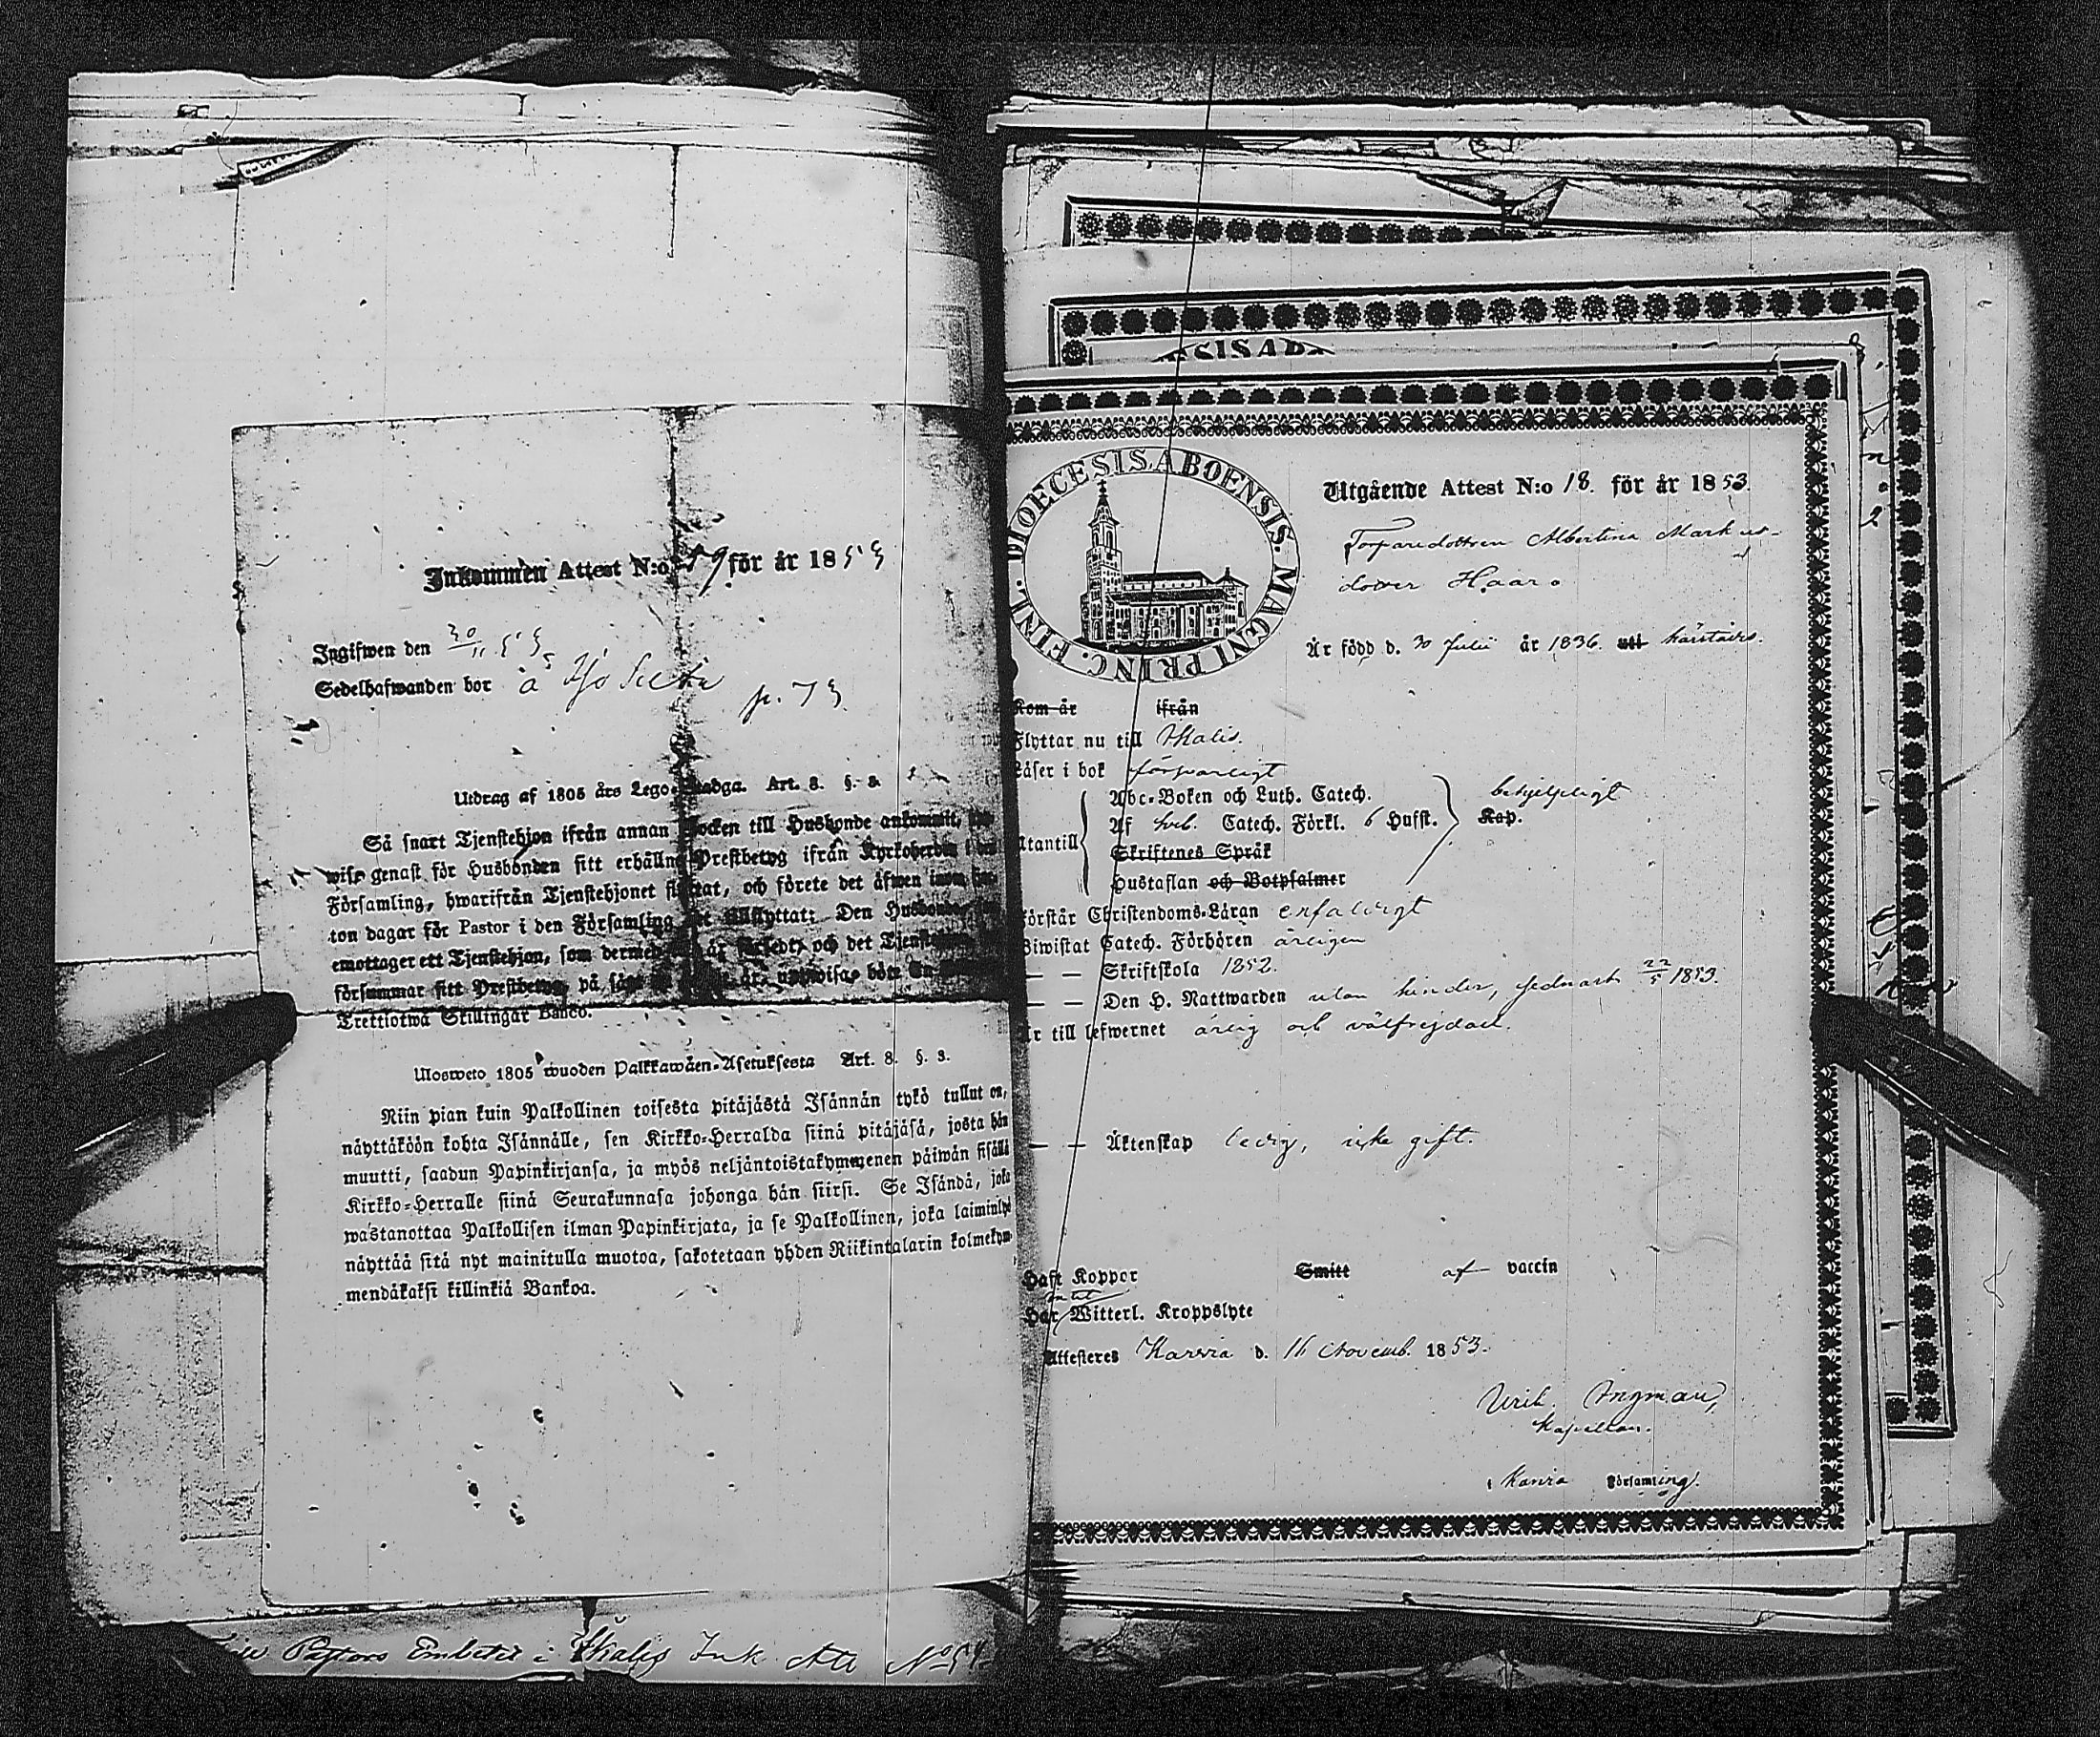 Inkommen Attest N:o 59 för år 1853
Ingifwen den 30/11 53
Sedelhafwanden bor å
p. 73
Utdrag af 1805 års Lego-Stadga. Art. 8. §. 3.
Så snart Tjenstehjon ifrån annan Socken till Husbonde ankommit,
wise genast för Husbonden sitt erhållne Prestbetyg ifrån Kyrkoherden i den
Församling, hwarifrån Tjenstehjonet flyttat, och förete det äfwen inom
ton dagar för Pastor i den Församling det tillflyttat: Den Husbonde,
emottager ett Tjenstehjon, som dermed är försedt, och det Tjenstehjon,
försummar sitt Prestbetyg, på
Trettiotwå Skillingar Banco.
Ulosweto 1805 wuoden Palkkawäen-Asetuksesta Art. 8. §. 3.
Niin pian kuin Palkollinen toisesta pitäjästä Isännän tykö tullut on,
näyttäköön kohta Isännälle, sen Kirkko-Herralda siinä pitäjäsä, josta hän
muutti, saadun Papinkirjansa, ja myös neljäntoistakymmenen päiwän sisällä
Kirkko-Herralle siinä Seurakunnasa johonga hän siirsi. Se Isändä, joka
wastanottaa Palkollisen ilman Papinkirjata, ja se Palkollinen, joka laiminlyö
näyttää sitä nyt mainitulla muotoa, sakotetaan yhden Riikintalarin kolmekym-
mendäkaksi killinkiä Bankoa.
Pastors Embetet i Ikalis Ink. Att. No 54
SISAB
DIOECESIS ABOENSIS. MAGNI PRINC. FINL.
Utgående Attest N:o 18. för år 1853.
Torparedottren Albertina Markus-
dotter Haar
Är född d. 30 Julii år 1836. uti
Kom år ifrån
Flyttar nu till Ikalis.
Läser i bok försvarligt
Utantill Abc-Boken och Luth. Catech. behjelpligt
Af Catech. Förkl. 6 Hufst. Kap.
Skriftenes Språk
Hustaflan och Botpsalmer
Förstår Christendoms-Läran enfaldigt
Biwistat Catech. Förhören årligen
— — Skriftskola 1852.
— — Den H. Nattwarden utan hinder, sednast 22/5 1853.
Är till lefwernet ärlig och välfrejdad.
— — Äktenskap ledig, icke gift.
Haft Koppor Smitt af vaccin
Har intet Witterl. Kroppslyte
Attesteres Karvia d. 16 Novemb. 1853.
Ingman,
Kapellan.
i Karvia Församling.